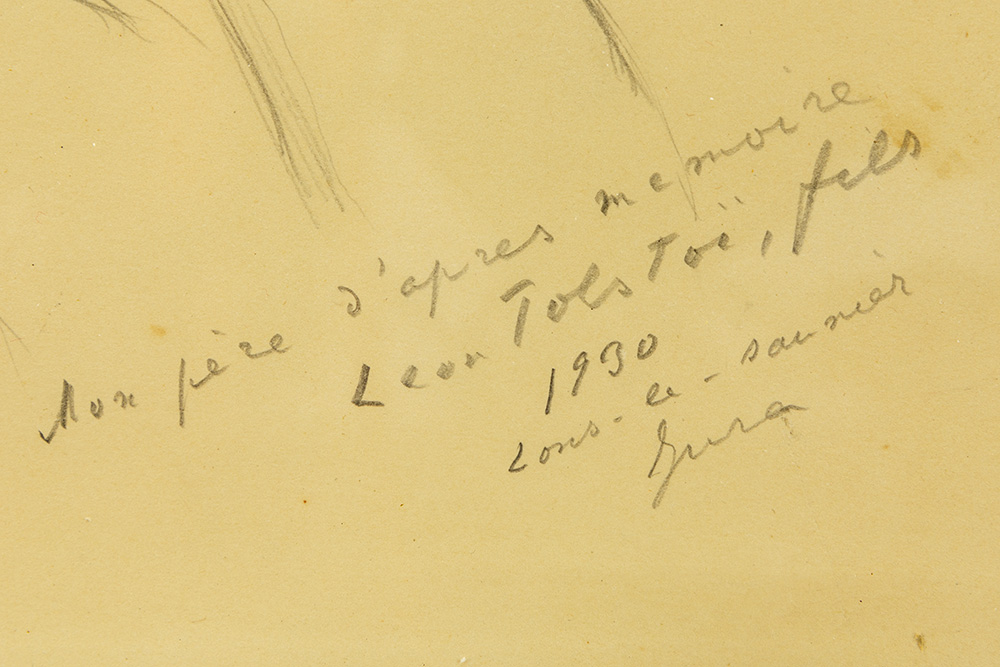 Mon père d'apres memoire
Leon Tolstoï, fils
1930
Lons-le-saunier
Jura